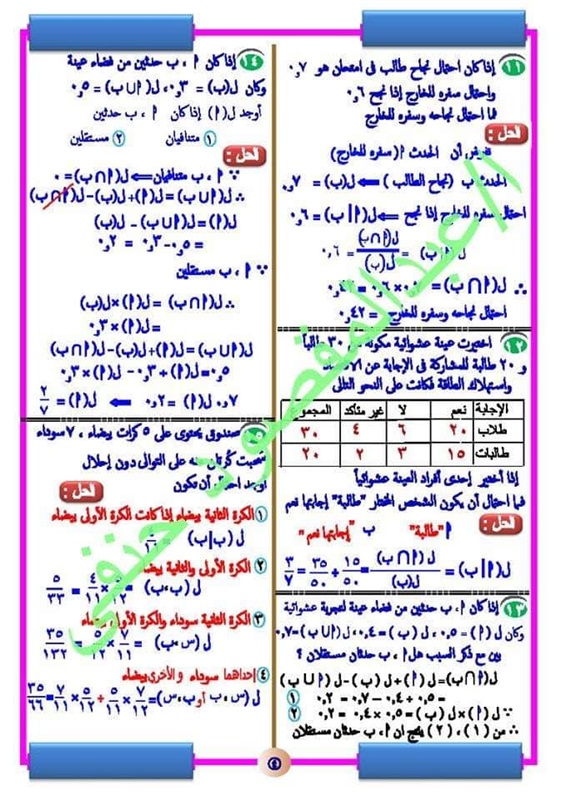 ١١ إذا كان احتمال نجاح طالب فى امتحان هو ٠,٧
واحتمال سفره للخارج إذا نجح ٠,٦
فما احتمال نجاحه وسفره للخارج
الحل :
نفرض أن الحدث أ ( سفره للخارج )
الحدث ب ( نجاح الطالب ) ⟸ ل(ب) = ٠,٧
احتمال سفره للخارج إذا نجح ⟸ ل(أ|ب) = ٠,٦
ل(أ|ب) = ل(أ∩ب) / ل(ب) = ٠,٦
∴ ل(أ∩ب) = ٠,٧ × ٠,٦ = ٠,٤٢
احتمال نجاحه وسفره للخارج = ٠,٤٢
١٢ اختيرت عينة عشوائية مكونة من ٣٠ طالباً
و ٢٠ طالبة للمشاركة فى الإجابة عن
واستهلاك الطاقة فكانت على النحو التالى
الإجابة نعم لا غير متأكد المجموع
طلاب ٢٠ ٦ ٤ ٣٠
طالبات ١٥ ٣ ٢ ٢٠
إذا أختير إحدى أفراد العينة عشوائياً
فما احتمال أن يكون الشخص المختار "طالبة" إجابتها نعم
الحل :
أ "طالبة" ب "إجابتها نعم"
ل(أ|ب) = ل(أ∩ب) / ل(ب) = ١٥/٥٠ ÷ ٣٥/٥٠ = ٣/٧
١٣ إذا كان أ ، ب حدثين من فضاء عينة لتجربة عشوائية
وكان ل(أ) = ٠,٥ ، ل(ب) = ٠,٤ ، ل(أ∪ب) = ٠,٧
بين مع ذكر السبب هل أ ، ب حدثان مستقلان ؟
ل(أ∩ب) = ل(أ) + ل(ب) - ل(أ∪ب)
= ٠,٥ + ٠,٤ - ٠,٧ = ٠,٢ ١
∵ ل(أ) × ل(ب) = ٠,٥ × ٠,٤ = ٠,٢ ٢
∴ من (١) ، (٢) ينتج ان أ ، ب حدثان مستقلان
١٤ إذا كان أ ، ب حدثين من فضاء عينة
وكان ل(ب) = ٠,٣ ، ل(أ∪ب) = ٠,٥
أوجد ل(أ) إذا كان أ ، ب حدثين
١ متنافيان ٢ مستقلين
الحل :
∵ أ ، ب متنافيان ⟸ ل(أ∩ب) = ٠
∴ ل(أ∪ب) = ل(أ) + ل(ب) - ل(أ∩ب)
ل(أ) = ل(أ∪ب) - ل(ب)
= ٠,٥ - ٠,٣ = ٠,٢
∵ أ ، ب مستقلين
∴ ل(أ∩ب) = ل(أ) × ل(ب)
= ل(أ) × ٠,٣
ل(أ∪ب) = ل(أ) + ل(ب) - ل(أ∩ب)
٠,٥ = ل(أ) + ٠,٣ - ل(أ) × ٠,٣
٠,٧ ل(أ) = ٠,٢ ⟸ ل(أ) = ٢/٧
١٥ صندوق يحتوى على ٥ كرات بيضاء ، ٧ سوداء
سُحبت كُرتان منه على التوالى دون إحلال
أوجد احتمال أن تكون
الحل :
١ الكرة الثانية بيضاء إذا كانت الكرة الأولى بيضاء
ل(ب|ب) =
٢ الكرة الأولى والثانية بيضاء
ل(ب،ب) = ٥/١٢ × ٤/١١ = ٥/٣٣
٣ الكرة الثانية سوداء والكرة الأولى بيضاء
ل(س،ب) = ٥/١٢ × ٧/١١ = ٣٥/١٣٢
٤ إحداهما سوداء والأخرى بيضاء
ل(س،ب أو ب،س) = ٧/١٢ × ٥/١١ + ٥/١٢ × ٧/١١ = ٣٥/٦٦
أ/عبدالمقصود حنفى
٤